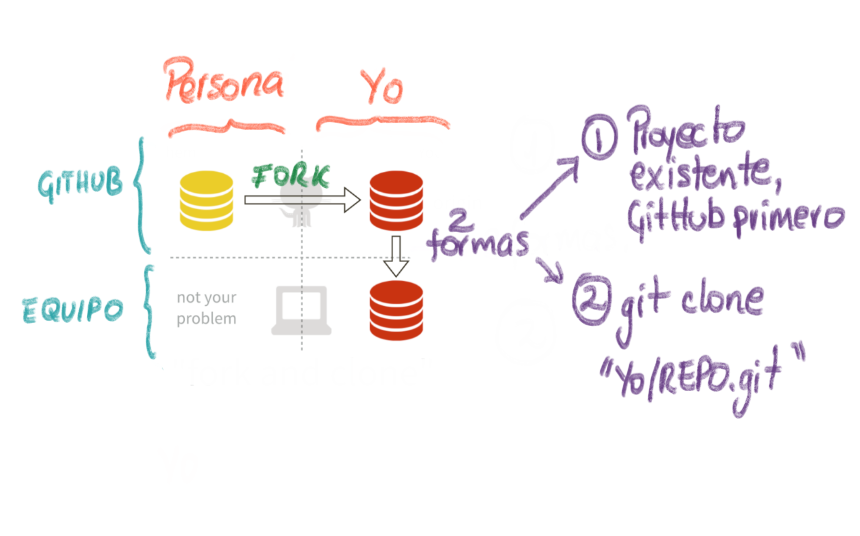 Persona
Yo
GITHUB
FORK
EQUIPO
not your
problem
2
formas
1 Proyecto
existente,
GitHub primero
2 git clone
"Yo/REPO.git"